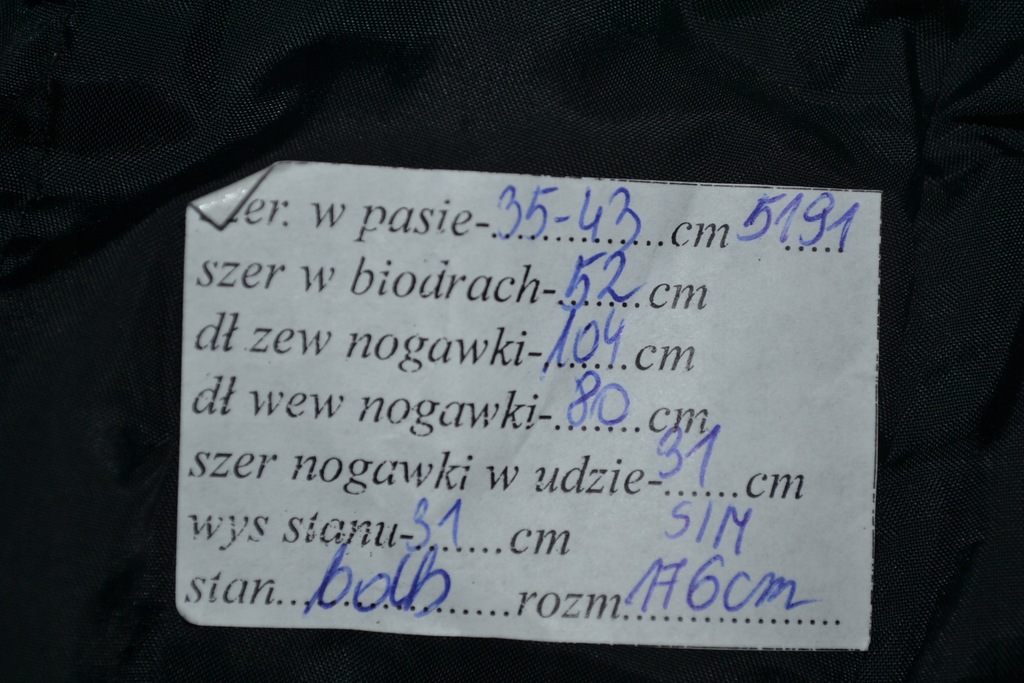 szer. w pasie-35-43 cm 5191
szer w biodrach-52 cm
dł zew nogawki-104 cm
dł wew nogawki-80 cm
szer nogawki w udzie-31 cm
wys stanu-31 cm S/M
stan...bdb...rozm.176cm